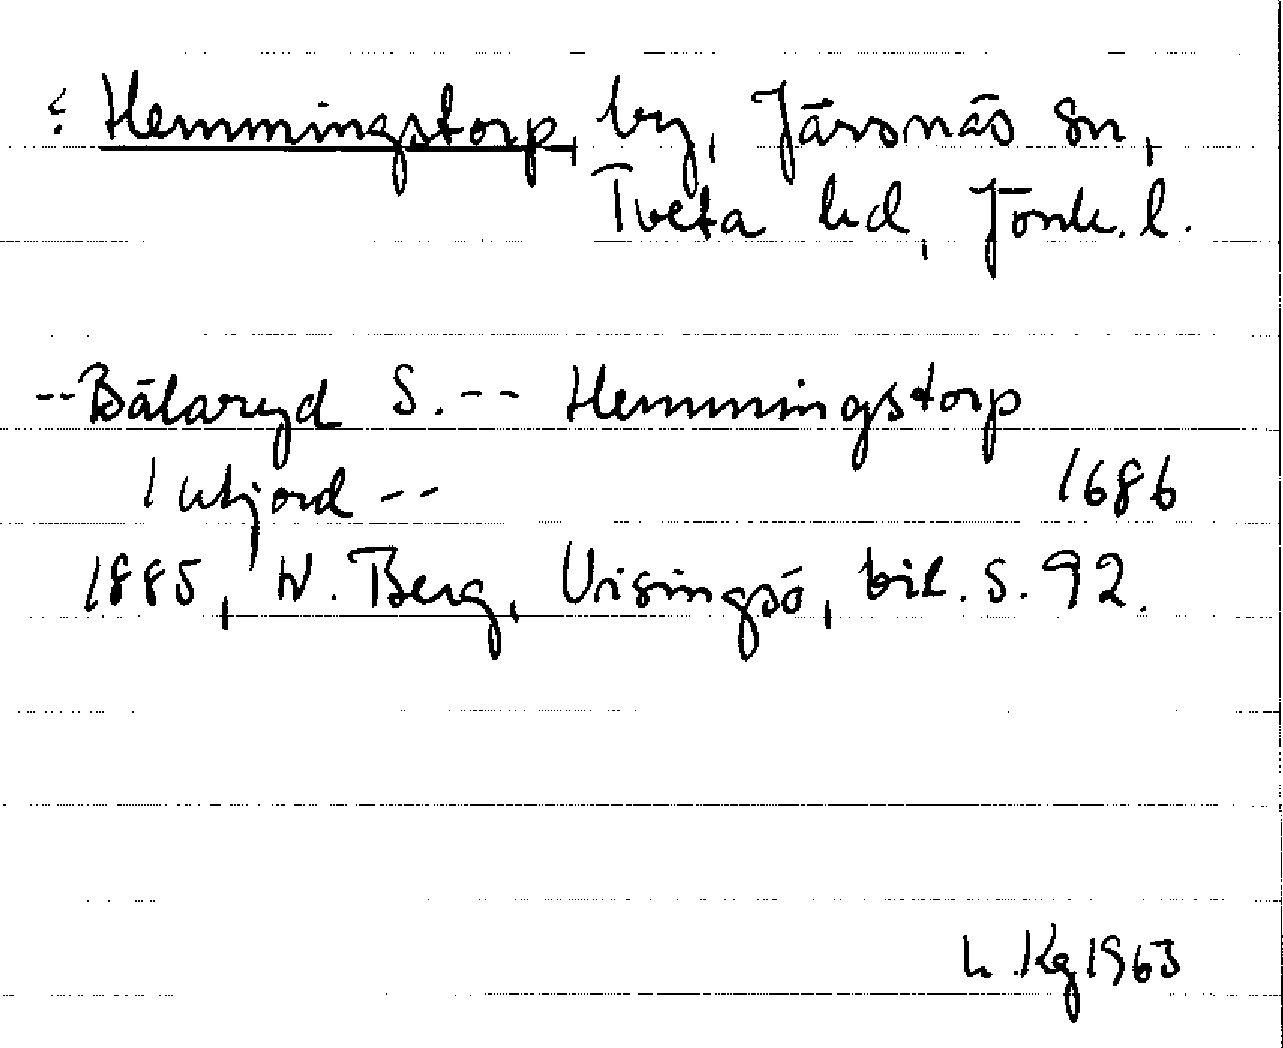 ? Hemmingstorp, by, Järsnäs sn,
Tveta hd, Jönk. l.
--Bälaryd S.-- Hemmingstorp
1 utjord -- 1686
1885, W. Berg, Visingsö, bil. S. 92.
Kg 1963